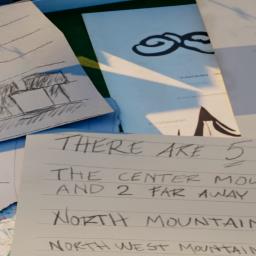 THERE ARE 5
THE CENTER MOU
AND 2 FAR AWAY
NORTH MOUNTAIN
NORTH WEST MOUNTAIN